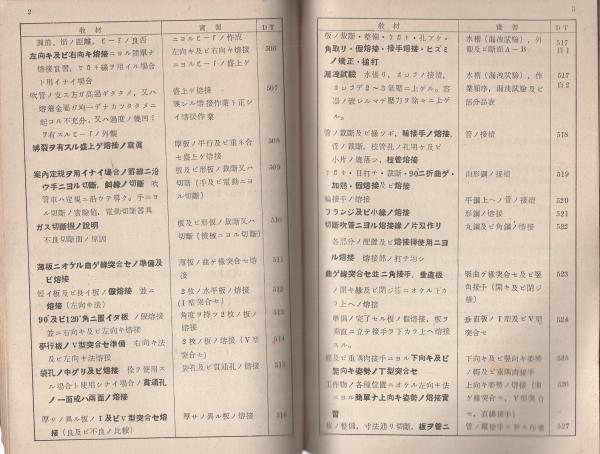 2
教材 實習 DT
調節,焰ノ距離,ビードノ良否 ニヨルビードノ作成
左向キ及ビ右向キ熔接ニヨル簡單ナ 左向キ及ビ右向キ熔接 506
熔接實習,ケガキ線ヲ用イル場合 ニヨルビード盛上ゲ
ト用イナイ場合
吹管ノ支エ方ガ高過ギタタメ,又ハ 盛上ゲ熔接 507
熔着金屬ガ均一デナカツタタメニ
起コル不充分,又ハ過度ノ幾凹ミ イ熔接作業
ヲ有スルビードノ外觀
龜裂ヲ有スル盛上ゲ熔接ノ寫眞 厚板ノ平行及ビ重ネ合 508
セ盛上ゲ熔接
案内定規ヲ用イナイ場合ノ罫線ニ沿 板及ビ形板ノ截斷又ハ 509
ウ手ニヨル切斷,斜線ノ切斷 切斷(手及ビ電動ニヨ
ル切斷)
コル切斷ノ實驗値,電動切斷器具
ガス切斷機ノ說明 板及ビ形板ノ截斷又ハ 510
不良切斷面ノ原因 切斷(機械ニヨル切斷)
薄板ニオケル曲ゲ緣突合セノ準備及 薄板ノ曲ゲ緣突合セ熔 511
ビ熔接 接
短イ板及ビ長イ板ノ假熔接 並ニ 2枚ノ水平板ノ熔接 512
熔接(左向キ法) (I型突合セ)
90°及ビ120°角ニ置イタ板ノ假熔接 角度ヲ持ツ2枚ノ板ノ 513
並ニ右向キ及ビ左向キ熔接 熔接
歩行板ノV型突合セ準備 右向キ法 2枚ノ板ノ熔接(V型 514
及ビ左向キ法熔接 突合セ)
袋孔ノ中ゲリ及ビ熔接 捻ヲ使用ス 袋孔及ビ貫通孔ノ熔接 515
ル場合ト使用シナイ場合ノ貫通孔
ノ一面或ハ兩面ノ熔接
厚サノ異ル板ノI及ビV型突合セ熔 厚サノ異ル板ノ熔接 516
接(良及ビ不良ノ比較)
3
教材 實習 DT
板ノ截斷・整備・ケガキ・孔アケ・ 水槽(漏洩試驗),外 517
角取リ・假熔接・接手熔接・ヒズミ 觀及ビ斷面A-B 頁1
ノ矯正・槌打
漏洩試驗 水張リ,ホロコノ接續, 水槽(漏洩試驗),作 517
業順序,漏洩試驗及ビ 頁2
器ノ破レルマデ壓力ヲ除キニ上ゲ 部分品表
ル。
管ノ截斷及ビ緣ソギ,輪接手ノ熔接, 管ノ接續 518
管ノ截斷,枝管孔ノ孔明ケ及ビ
小片ノ燒落シ,枝管熔接
ケガキ・目打チ・截斷・90二折曲ゲ・ 山形鋼ノ接續 519
加熱・假熔接及ビ熔接
輪接手ノ熔接 平鋼上ヘノ管ノ接續 520
フランジ及ビ小緣ノ熔接 形鋼ノ熔接 521
切斷吹管ニヨル熔接緣ノ片刃作リ 丸鋼及ビ角鋼ノ熔接 522
各部分ノ配置及ビ熔接棒使用ニヨ
ル熔接 熔接部ノ打チ均シ
曲ゲ緣突合セ並ニ角接手,垂直板 竪曲ゲ緣突合セ及ビ竪 523
ノ開キ緣及ビ閉ジ緣ニオケル下カ 角接手(開キ及ビ閉ジ
ラ上ヘノ熔接 緣)
準備ノ完了セル板ノ假熔接,板ヲ 垂直板ノI型及ビV型 524
垂直ニ立テ接手ヲ下カラ上ヘ熔接 突合セ
スル。
輕及ビ重隅肉接手ニヨル下向キ及ビ 下向キ及ビ竪向キ姿勢 525
竪向キ姿勢ノT型突合セ ノ輕及ビ重隅肉接手
工作物ノ各種位置ニオケル左向キ法 上向キ姿勢ノ熔接(曲 526
ニヨル簡單ナ上向キ姿勢ノ熔接實 ゲ緣突合セ,V型突合
習 セ,直線接手)
板ノ整備,寸法通リ切斷,板ヲ管ニ 527